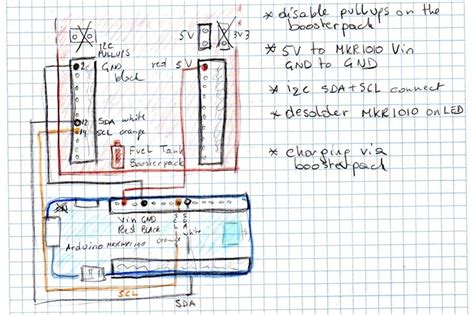 * disable pullups on the
boosterpack
* 5V to MKR1010 Vin
GND to GND
* I2C SDA+SCL connect
* desolder MKR1010 on LED
* charging via
boosterpack
I2C
PULLUPS
5V
3V3
GND
black
red 5V
SDA white
19 SCL orange
Fuel Tank
Boosterpack
Vin GND
Red BLACK
orange
white
Arduino
SCL
SDA